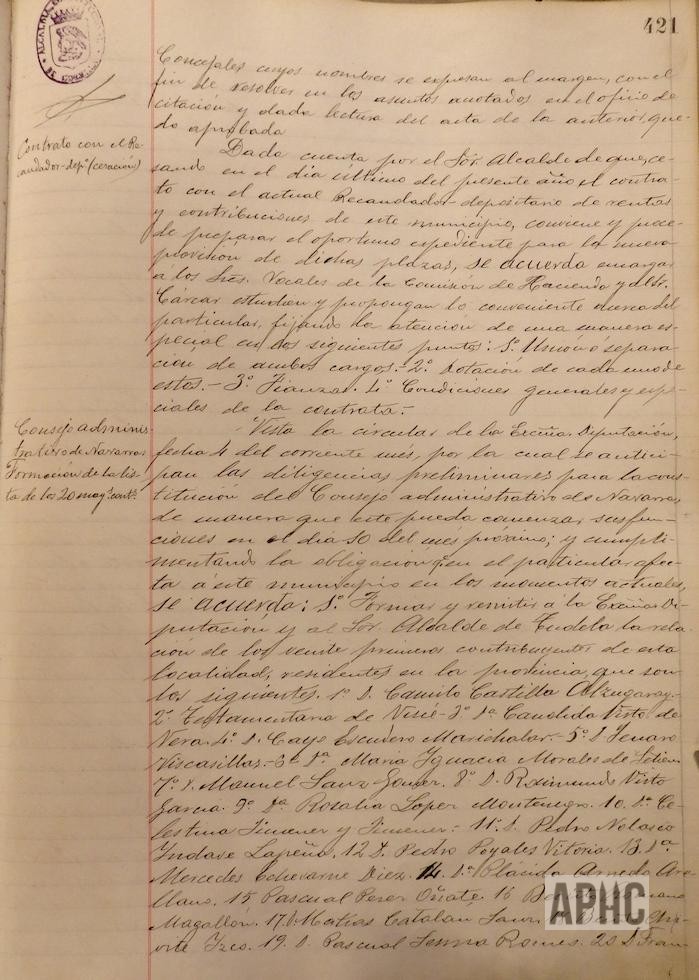 421
Concejales cuyos nombres se expresan al margen, con el
fin de resolver en los asuntos anotados en el oficio de
citación y dada lectura del acta de la anterior, que-
do aprobada
Contrato con el Re-
caudador-depº (cesación)
Dada cuenta por el Sor. Alcalde de que, ce-
sando en el día último del presente año el contra-
to con el actual Recaudador-depositario de rentas
y contribuciones de este municipio, conviene y proce-
de preparar el oportuno expediente para la nueva
provisión de dichas plazas, se acuerda encargar
a los Sres. Vocales de la Comisión de Hacienda y al Sr.
Cárcar estudien y propongan lo conveniente acerca del
particular, fijando la atención de una manera es-
pecial en los siguientes puntos: 1º Unión o separa-
ción de ambos cargos.- 2º Dotación de cada uno de
estos.- 3º Fianza. 4º Condiciones generales y espe-
ciales de la contrata.-
Consejo adminis-
trativo de Navarra
Formación de la lis-
ta de los 20 may. cont.
Vista la circular de la Excma. Diputación,
fecha 4 del corriente mes, por la cual se antici-
pan las diligencias preliminares para la cons-
titución del Consejo administrativo de Navarra,
de manera que este pueda comenzar sus fun-
ciones en el día 10 del mes próximo; y cumpli-
mentando la obligación q. en el particular afec-
ta a este municipio en los momentos actuales,
se acuerda: 1º Formar y remitir á la Excma. Di-
putación y al Sor. Alcalde de Tudela la rela-
ción de los veinte primeros contribuyentes de esta
localidad, residentes en la provincia, que son
los siguientes. 1º D. Camilo Castilla Alzugaray.-
2º Testamentaria de Visié- 3º Dª Candida Visto de
Vera. 4º D. Cayo Escudero Marichalar.- 5º D. Genaro
Viscasillas.- 6º Dª Maria Ignacia Morales de Setién
7º D. Manuel Sanz Gomez. 8º D. Raimundo Visto
Garcia. 9º Dª Rosalia Lopez Montenegro. 10. Dª Ce-
lestina Jimenez y Jimenez: 11º D. Pedro Nolasco
Lapeña. 12 D. Pedro Poyales Vitoria. 13. Dª
Mercedes Echevarne Diez. 14. Dª Plácida Arnedo Are-
llano. 15 Pascual Perez Oñate. 16
Magallón. 17. D. Matias Catalan
19. D. Pascual Ramos. 20 D. Fran-
APHC